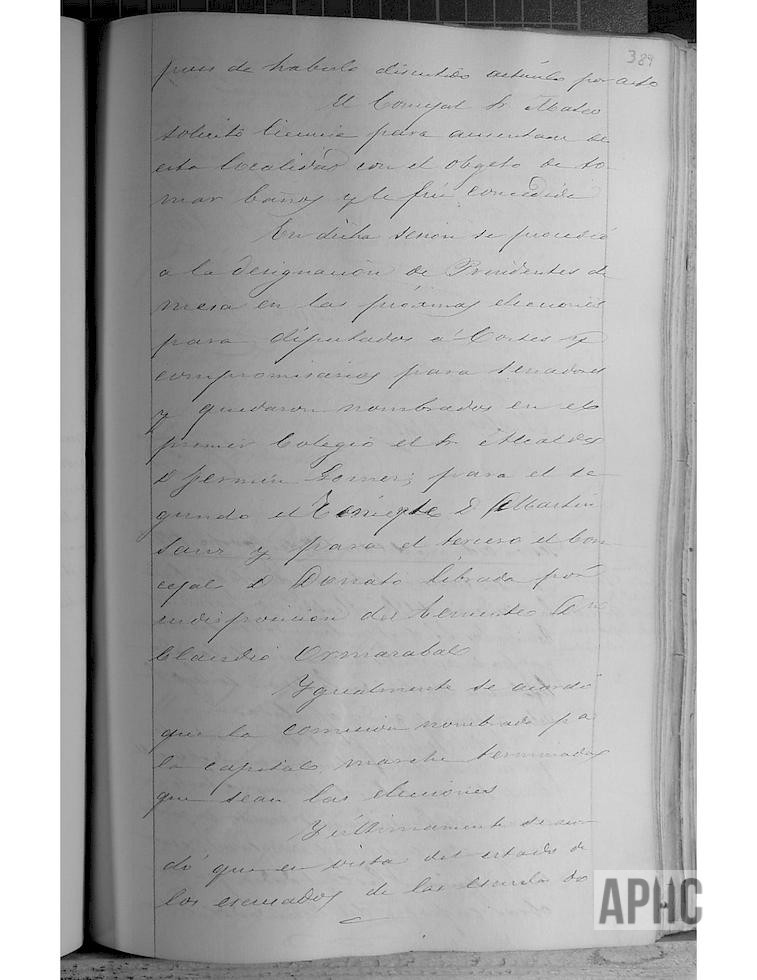 389
pues de haberlo discutido artículo por arto
El Concejal Sr. Mateo
solicitó licencia para ausentarse de
esta localidad con el obgeto de to-
mar baños y le fué concedida
En dicha sesion se procedió
a la designación de Presidentes de
mesa en las próximas elecciones
para diputados á Cortes y
compromisarios para senadores
y quedaron nombrados en el
primer Colegio el Sr. Alcalde
D. Fermin Gomez; para el se-
gundo el Teniente D. Martin
Sanz y para el tercero el Con-
cejal D. Donato Librada por
indisposicion del teniente Dn
Claudio Ormazabal
Ygualmente se acordó
que la comision nombrada pa
la capital marche terminadas
que sean las elecciones
Y últimamente se acor-
dó que en vista del estado de
los escusados de las escuelas de
APHC